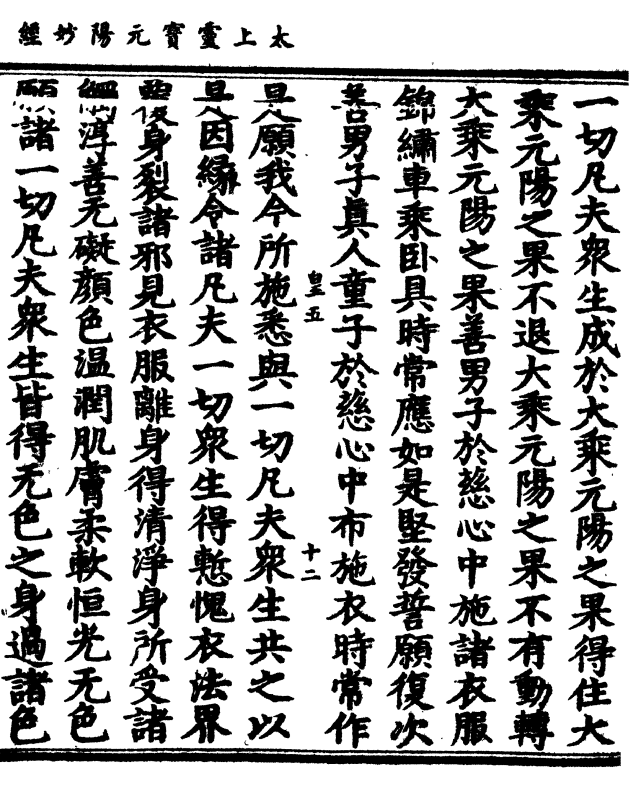 太上靈寶元陽妙經
一切凡夫衆生成於大乘元陽之果得住大
乘元陽之果不退大乘元陽之果不有動轉
大乘元陽之果善男子於慈心中施諸衣服
錦繡車乘卧具時常應如是堅發誓願復次
善男子真人童子於慈心中布施衣時常作
皇五
十二
是願我今所施悉與一切凡夫衆生共之以
是因緣令諸凡夫一切衆生得慙愧衣法界
覆身裂諸邪見衣服離身得清淨身所受諸
細滑善无礙顔色温潤肌膚柔軟恒光无色
願諸一切凡夫衆生皆得无色之身過諸色